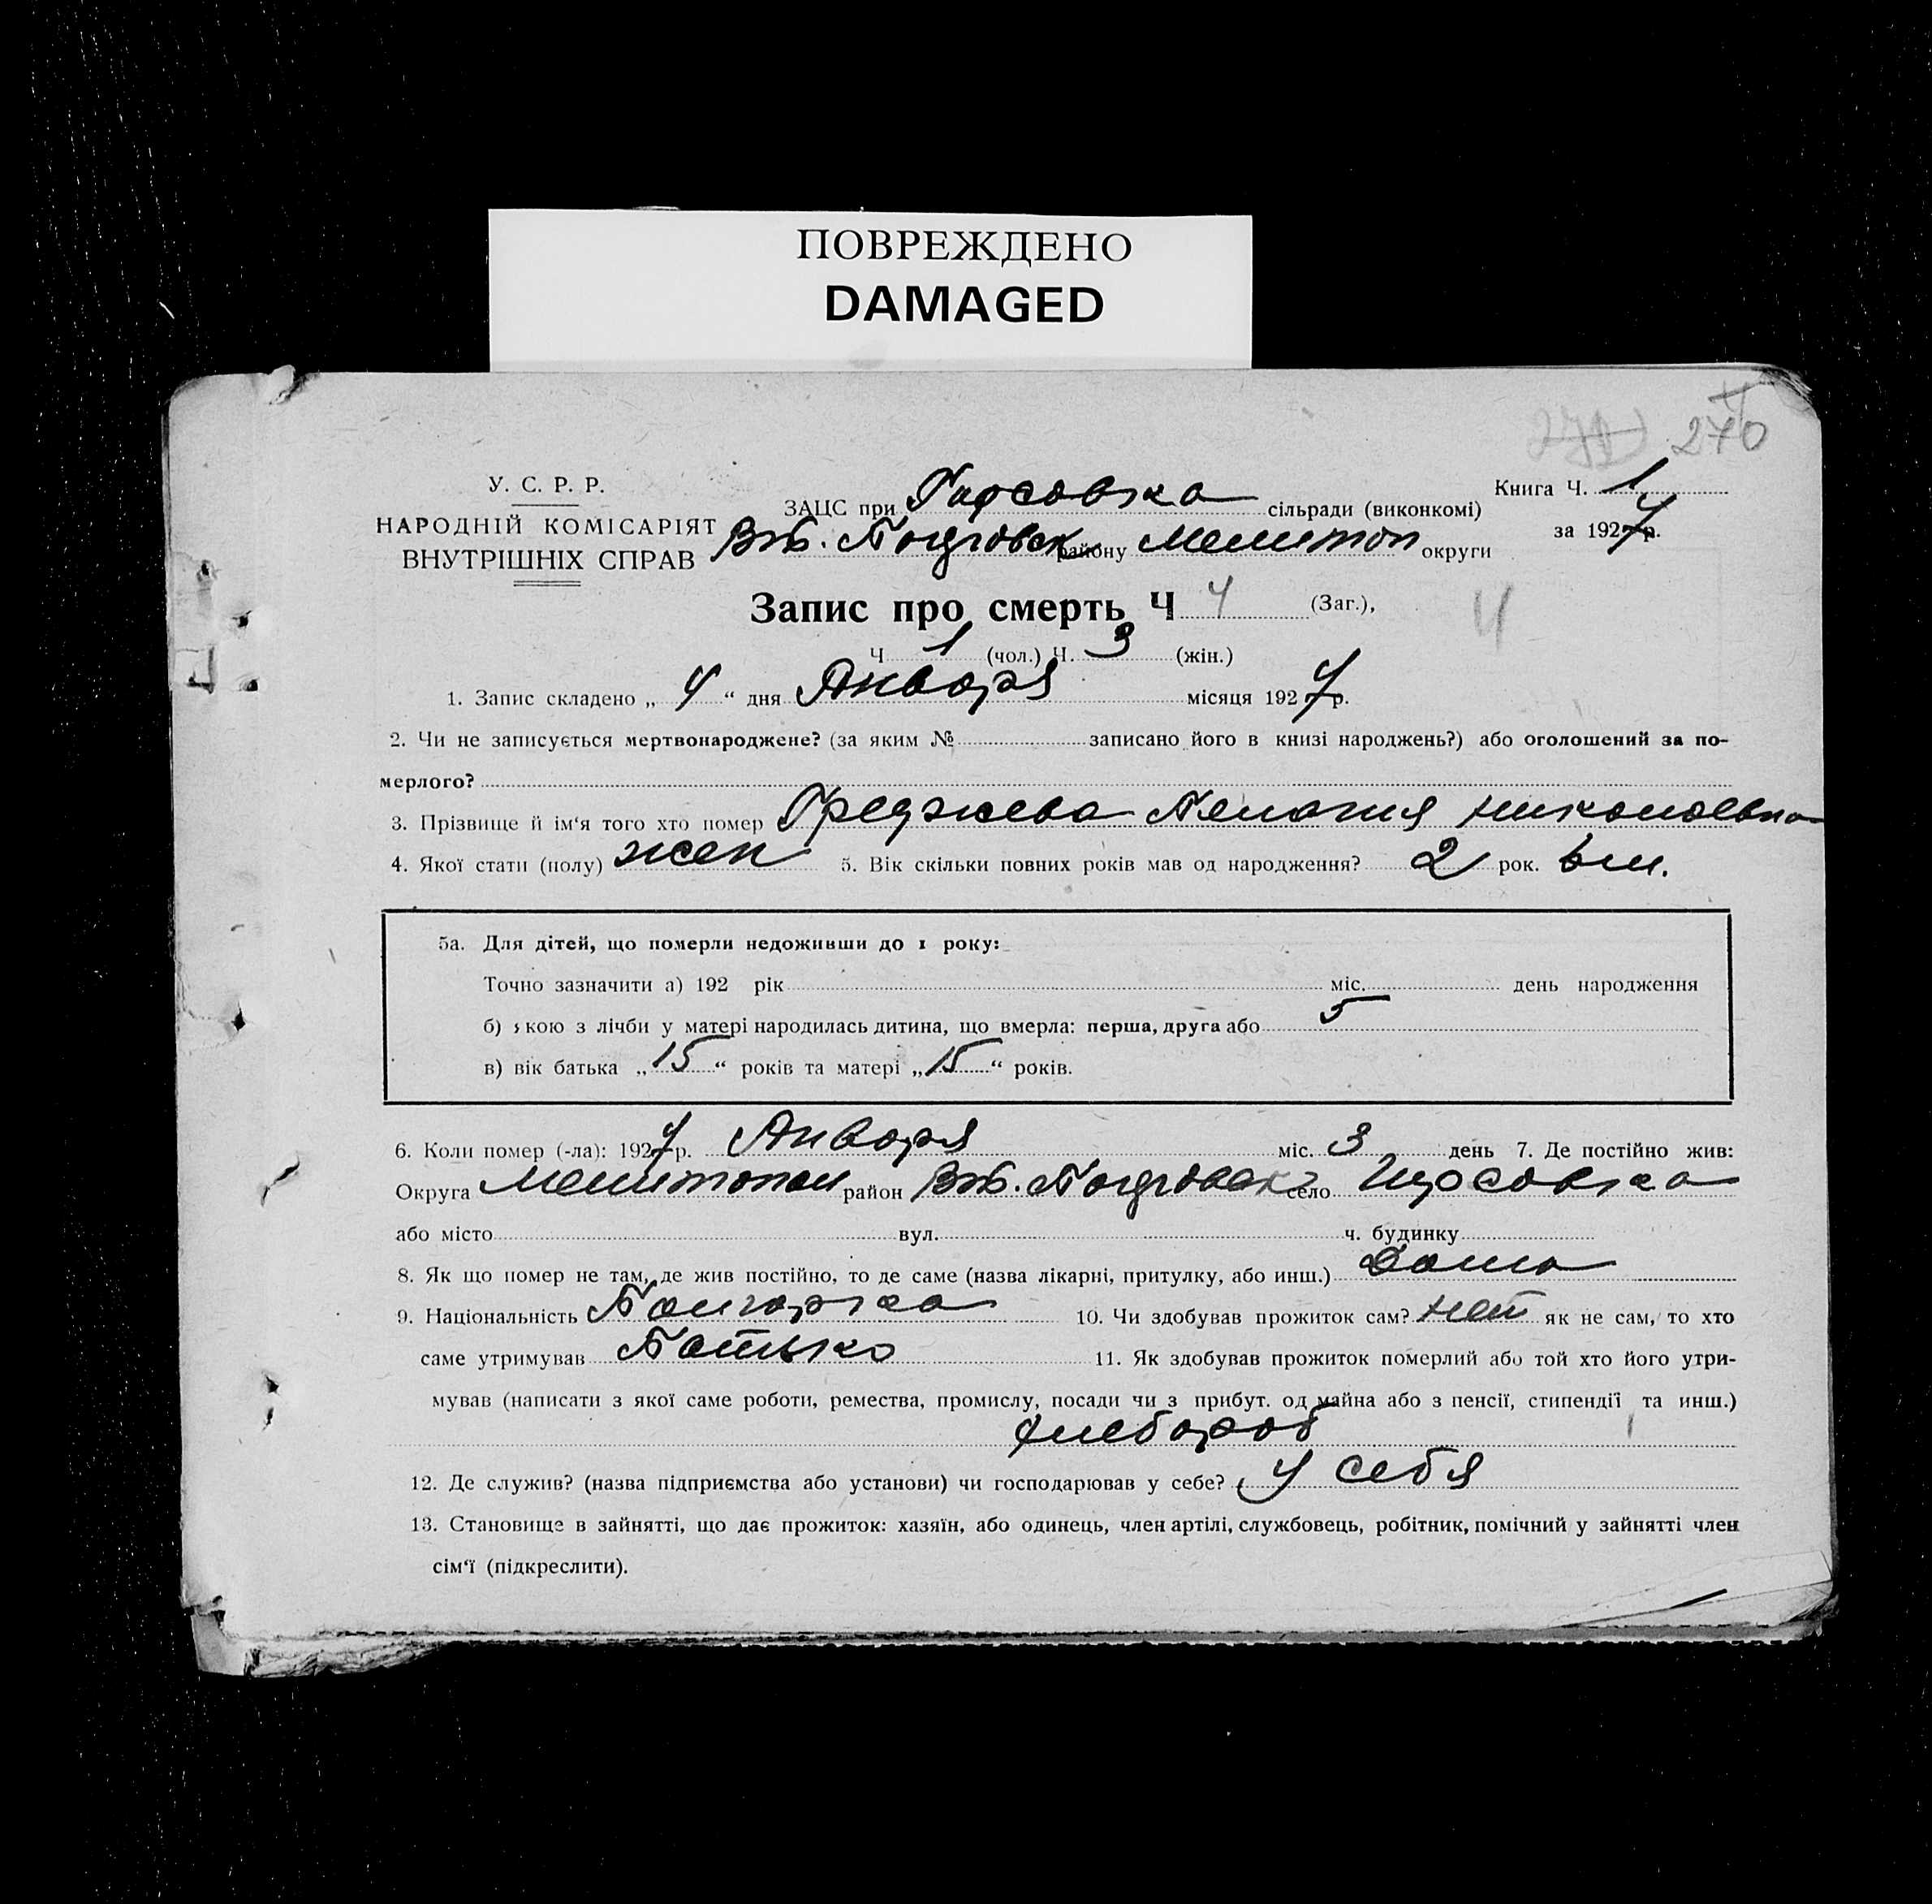 ПОВРЕЖДЕНО
DAMAGED
270
У. С. Р. Р.
НАРОДНІЙ КОМІСАРІЯТ
ВНУТРІШНІХ СПРАВ
ЗАЦС при Гирсовка сільради (виконкомі)
Книга Ч. 1
району Мелитоп округи
за 1927 р.
Запис про смерть Ч 4 (Заг.),
4
Ч 1 (чол.) Ч. 3 (жін.)
1. Запис складено „ 4 “ дня Января місяця 1927 р.
2. Чи не записується мертвонароджене? (за яким № записано його в книзі народжень?) або оголошений за по-
мерлого?
3. Прізвище й ім‘я того хто помер Греджева Пелагия Николаевна
4. Якої стати (полу) жен 5. Вік скільки повних років мав од народження? 2 рок. 6 м.
5а. Для дітей, що померли недоживши до 1 року:
Точно зазначити а) 192 рік міс. день народження
б) якою з лічби у матері народилась дитина, що вмерла: перша, друга або 5
в) вік батька „ 15 “ років та матері „ 15 “ років.
6. Коли помер (-ла): 1927 р. Января міс. 3 день 7. Де постійно жив:
Округа Мелитопол район село Гирсовка
або місто вул. ч. будинку
8. Як що помер не там, де жив постійно, то де саме (назва лікарні, притулку, або инш.) Дома
9. Національність Болгарка 10. Чи здобував прожиток сам? нет як не сам, то хто
саме утримував Батько 11. Як здобував прожиток померлий або той хто його утри-
мував (написати з якої саме роботи, ремества, промислу, посади чи з прибут. од майна або з пенсії, стипендії та инш.)
хлебороб
12. Де служив? (назва підприємства або установи) чи господарював у себе? у себя
13. Становище в зайнятті, що дає прожиток: хазяїн, або одинець, член артілі, службовець, робітник, помічний у зайнятті член
сім‘ї (підкреслити).